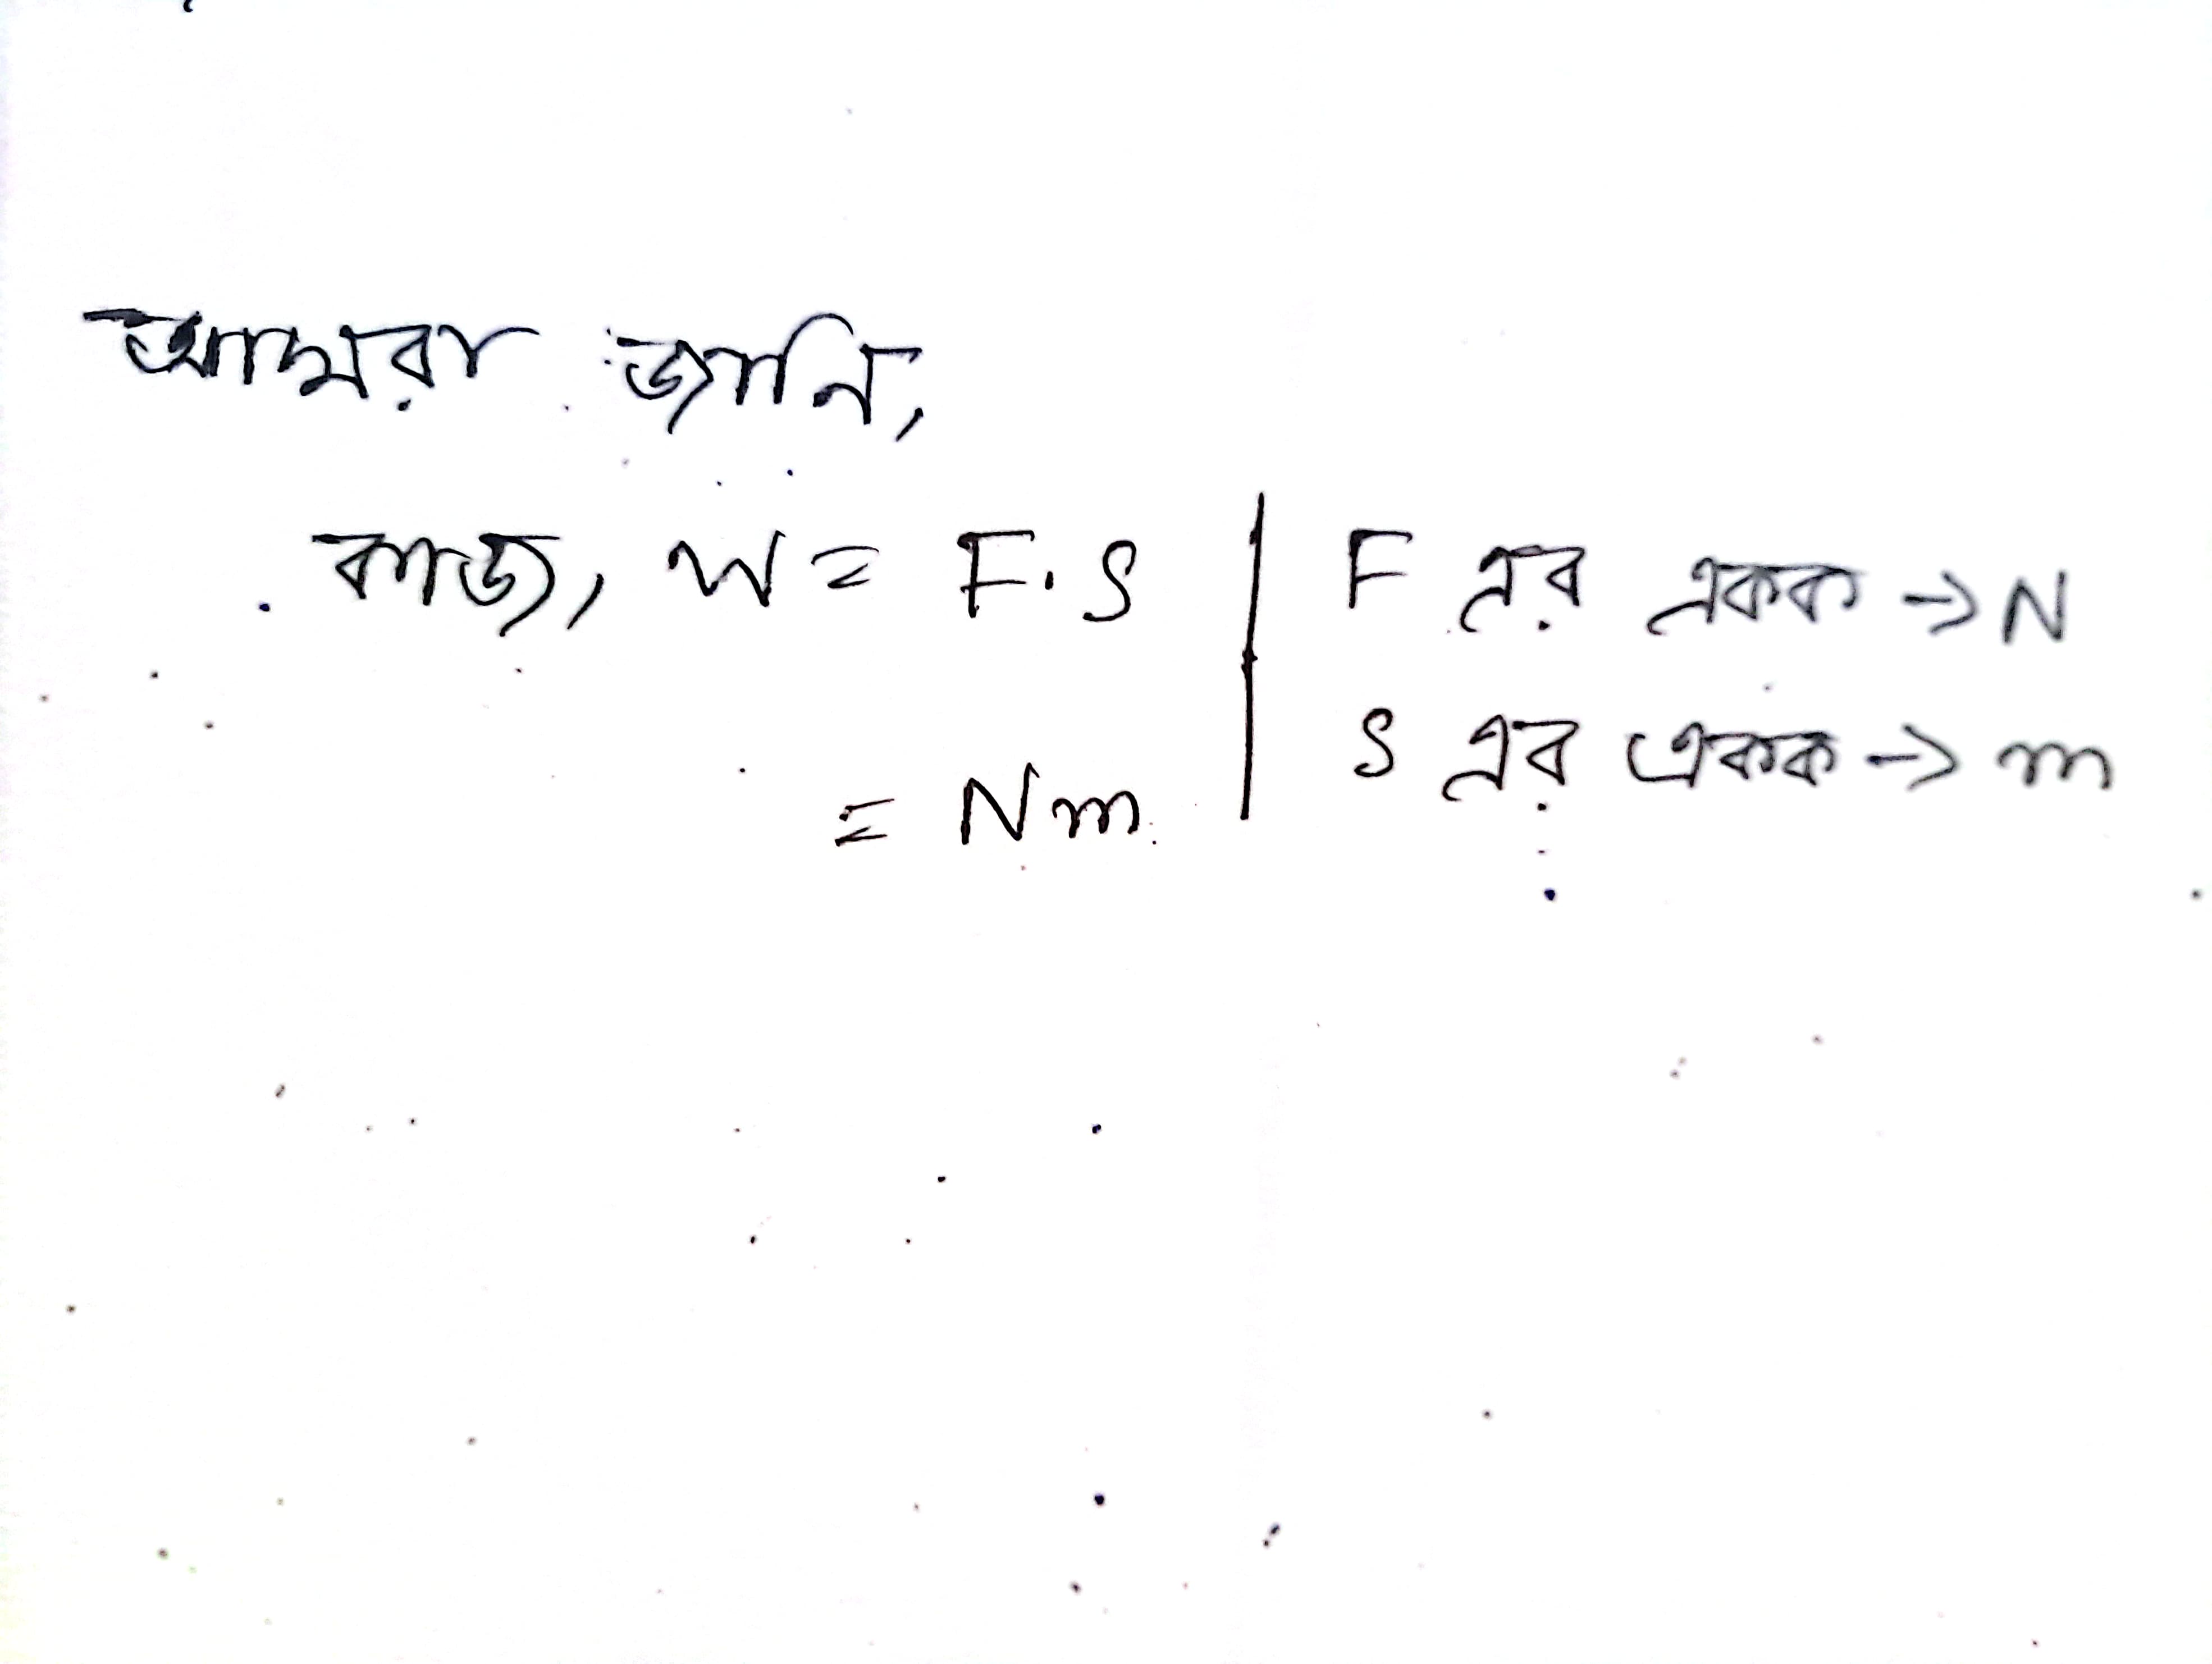 আমরা জানি,
কাজ, W = F.S | F এর একক → N
S এর একক → m
= Nm